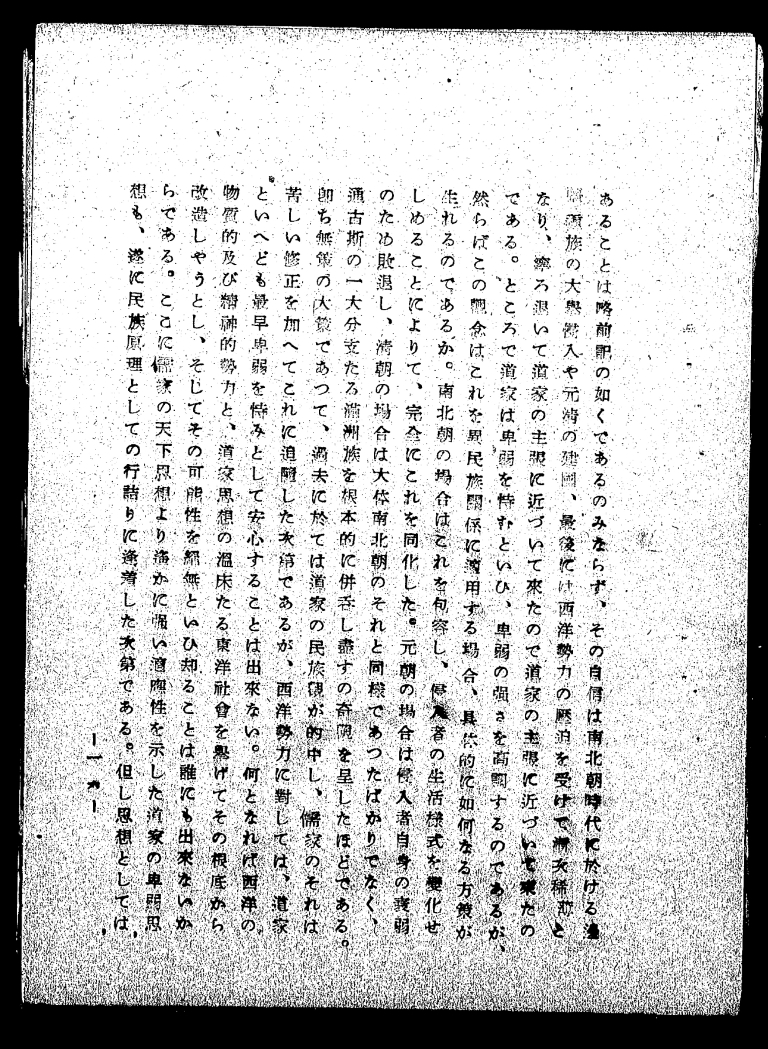 あることは略前記の如くであるのみならず、その自信は南北朝時代に於ける
族の大擧侵入や元淸の建國、最後には西洋勢力の壓迫を受けて漸次稀薄と
なり、寧ろ退いて道家の主張に近づいて來たので道家の主張に近づいて來たの
である。ところで道家は卑弱を恃むといひ、卑弱の强さを高調するのであるが、
然らばこの觀念はこれを異民族關係に適用する場合、具体的に如何なる方策が
生れるのであるか。南北朝の場合はこれを包容し、侵入者の生活樣式を變化せ
しめることによりて、完全にこれを同化した。元朝の場合は侵入者自身の衰弱
のため敗退し、淸朝の場合は大体南北朝のそれと同樣であつたばかりでなく、
通古斯の一大分支たる滿洲族を根本的に併呑し盡すの奇觀を呈したほどである。
卽ち無策の大策であつて、過去に於ては道家の民族觀が的中し、儒家のそれは
苦しい修正を加へてこれに追隨した次第であるが、西洋勢力に對しては、道家
といへども最早卑弱を恃みとして安心することは出來ない。何となれば西洋の
物質的及び精神的勢力と、道家思想の溫床たる東洋社會を擧げてその根底から
改造しやうとし、そしてその可能性を絕無といひ却ることは誰にも出來ないか
らである。ここに儒家の天下思想より遙かに强い適應性を示した道家の卑弱思
想も、遂に民族原理としての行詰りに逢着した次第である。但し思想としては、